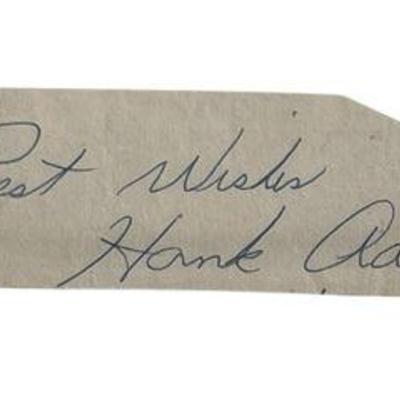 Best Wishes
Hank